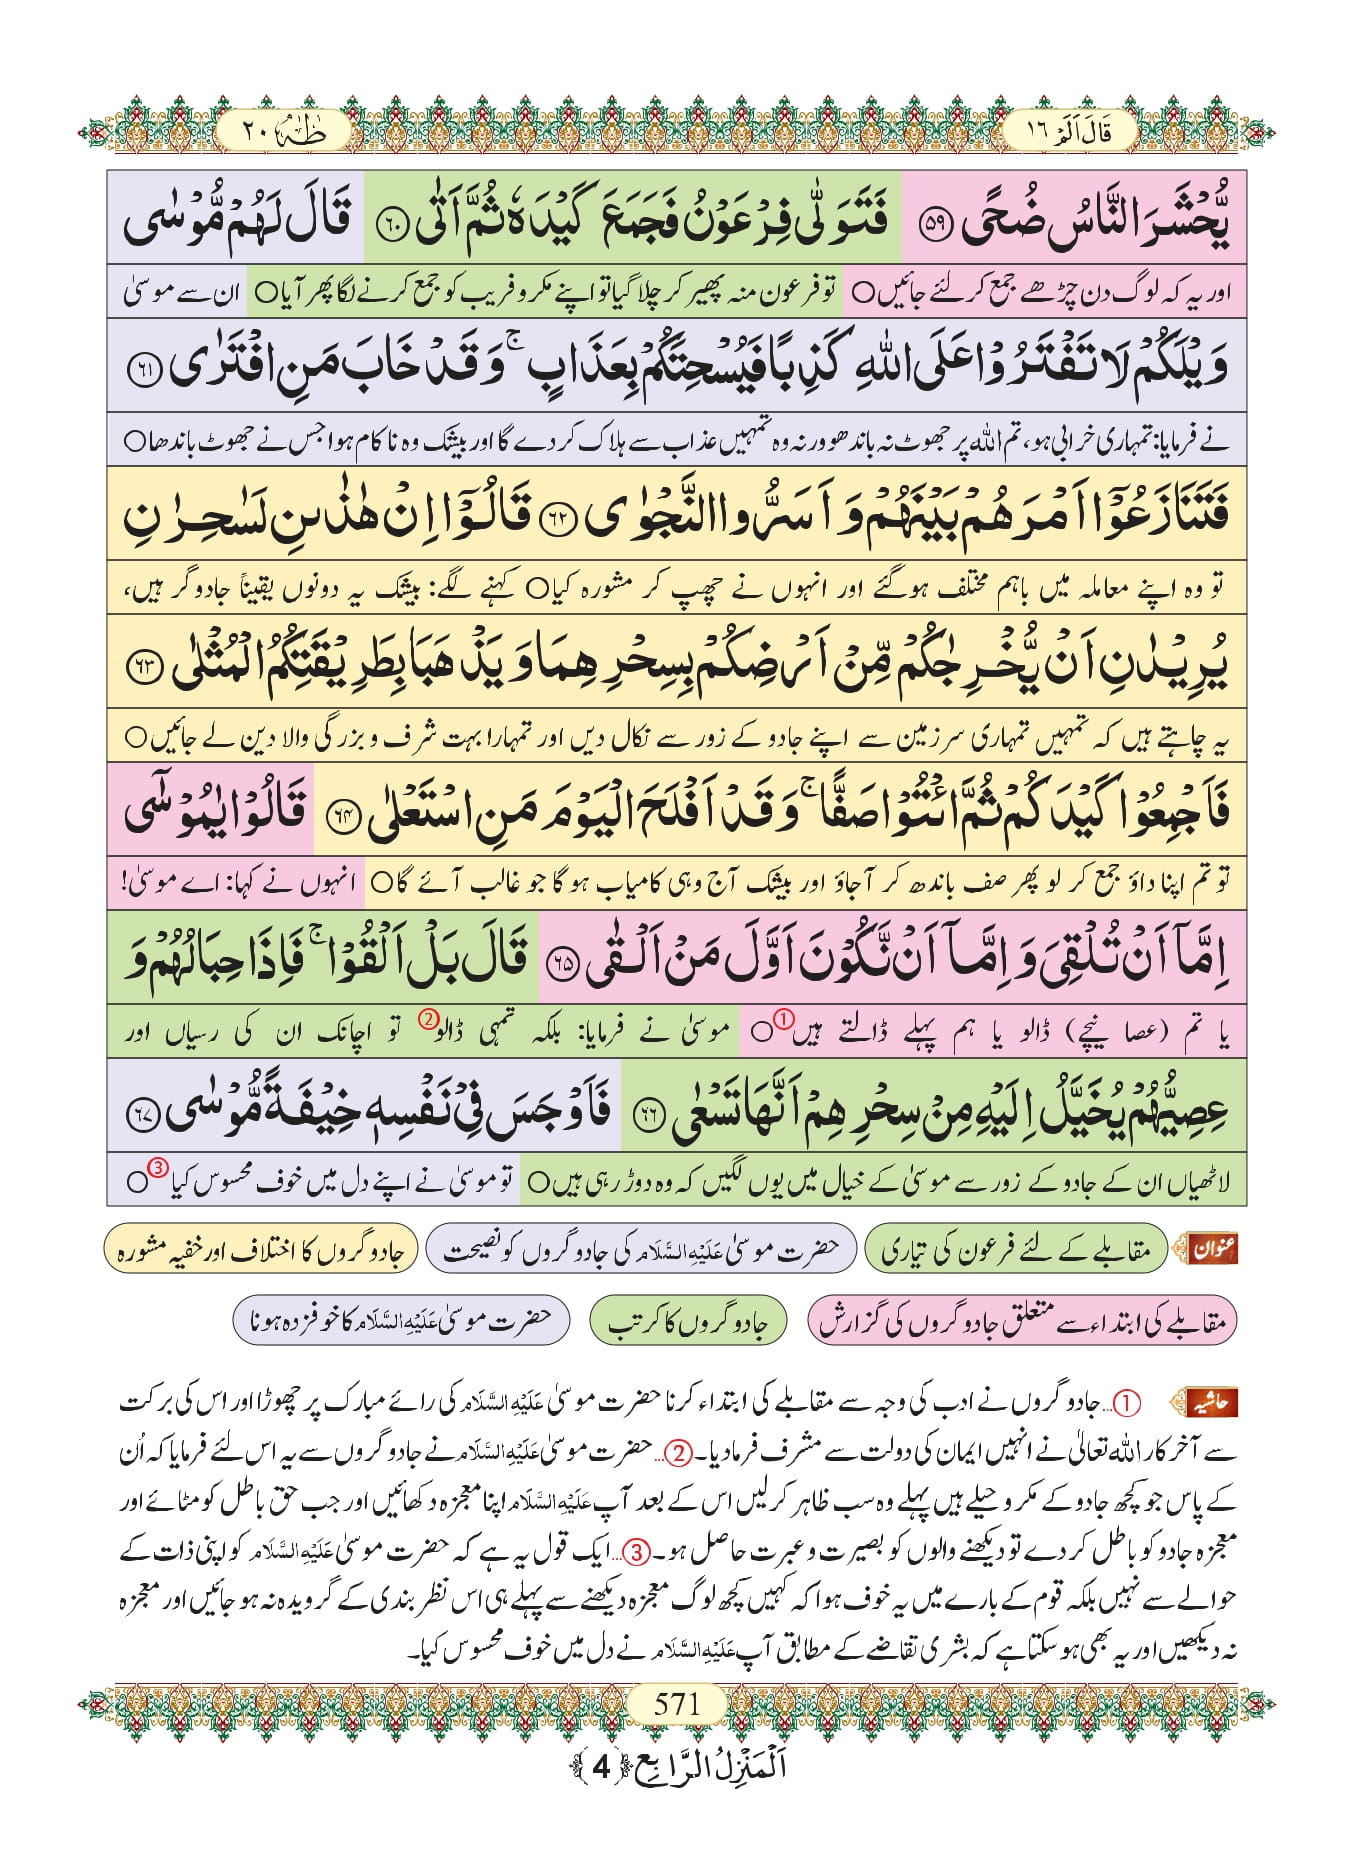 قَالَ اَلَمْ ١٦
طٰهٰ ٢٠
یُّحْشَرَ النَّاسُ ضُحًى ﴿۵۹﴾ فَتَوَلّٰى فِرْعَوْنُ فَجَمَعَ كَیْدَهٗ ثُمَّ اَتٰى ﴿۶۰﴾ قَالَ لَهُمْ مُّوْسٰى
اور یہ کہ لوگ دن چڑھے جمع کر لئے جائیں○ تو فرعون منہ پھیر کر چلا گیا تو اپنے مکر و فریب کو جمع کرنے لگا پھر آیا○ ان سے موسیٰ
وَیْلَكُمْ لَا تَفْتَرُوْا عَلَى اللّٰهِ كَذِبًا فَیُسْحِتَكُمْ بِعَذَابٍ ۚ وَ قَدْ خَابَ مَنِ افْتَرٰى ﴿۶۱﴾
نے فرمایا: تمہاری خرابی ہو، تم اللہ پر جھوٹ نہ باندھو ورنہ وہ تمہیں عذاب سے ہلاک کر دے گا اور بیشک وہ ناکام ہوا جس نے جھوٹ باندھا○
فَتَنَازَعُوْۤا اَمْرَهُمْ بَیْنَهُمْ وَ اَسَرُّوا النَّجْوٰى ﴿۶۲﴾ قَالُوْۤا اِنْ هٰذٰىنِ لَسٰحِرٰنِ
تو وہ اپنے معاملہ میں باہم مختلف ہوگئے اور انہوں نے چھپ کر مشورہ کیا○ کہنے لگے: بیشک یہ دونوں یقیناً جادوگر ہیں،
یُرِیْدٰنِ اَنْ یُّخْرِجٰكُمْ مِّنْ اَرْضِكُمْ بِسِحْرِهِمَا وَ یَذْهَبَا بِطَرِیْقَتِكُمُ الْمُثْلٰى ﴿۶۳﴾
یہ چاہتے ہیں کہ تمہیں تمہاری سرزمین سے اپنے جادو کے زور سے نکال دیں اور تمہارا بہت شرف و بزرگی والا دین لے جائیں○
فَاَجْمِعُوْا كَیْدَكُمْ ثُمَّ ائْتُوْا صَفًّا ۚ وَ قَدْ اَفْلَحَ الْیَوْمَ مَنِ اسْتَعْلٰى ﴿۶۴﴾ قَالُوْا یٰمُوْسٰۤى
تو تم اپنا داؤ جمع کر لو پھر صف باندھ کر آجاؤ اور بیشک آج وہی کامیاب ہو گا جو غالب آئے گا○ انہوں نے کہا: اے موسیٰ!
اِمَّاۤ اَنْ تُلْقِیَ وَ اِمَّاۤ اَنْ نَّكُوْنَ اَوَّلَ مَنْ اَلْقٰى ﴿۶۵﴾ قَالَ بَلْ اَلْقُوْا ۚ فَاِذَا حِبَالُهُمْ وَ
یا تم (عصا نیچے) ڈالو یا ہم پہلے ڈالتے ہیں①○ موسیٰ نے فرمایا: بلکہ تمہی ڈالو② تو اچانک ان کی رسیاں اور
عِصِیُّهُمْ یُخَیَّلُ اِلَیْهِ مِنْ سِحْرِهِمْ اَنَّهَا تَسْعٰى ﴿۶۶﴾ فَاَوْجَسَ فِیْ نَفْسِهٖ خِیْفَةً مُّوْسٰى ﴿۶۷﴾
لاٹھیاں ان کے جادو کے زور سے موسیٰ کے خیال میں یوں لگیں کہ وہ دوڑ رہی ہیں○ تو موسیٰ نے اپنے دل میں خوف محسوس کیا③○
عنوان مقابلے کے لئے فرعون کی تیاری حضرت موسیٰ عَلَیْهِ السَّلَام کی جادوگروں کو نصیحت جادوگروں کا اختلاف اور خفیہ مشورہ
مقابلے کی ابتداء سے متعلق جادوگروں کی گزارش جادوگروں کا کرتب حضرت موسیٰ عَلَیْهِ السَّلَام کا خوفزدہ ہونا
حاشیہ ①... جادوگروں نے ادب کی وجہ سے مقابلے کی ابتداء کرنا حضرت موسیٰ عَلَیْهِ السَّلَام کی رائے مبارک پر چھوڑا اور اس کی برکت
سے آخر کار اللہ تعالیٰ نے انہیں ایمان کی دولت سے مشرف فرمادیا۔ ②... حضرت موسیٰ عَلَیْهِ السَّلَام نے جادوگروں سے یہ اس لئے فرمایا کہ اُن
کے پاس جو کچھ جادو کے مکر و حیلے ہیں پہلے وہ سب ظاہر کرلیں اس کے بعد آپ عَلَیْهِ السَّلَام اپنا معجزہ دکھائیں اور جب حق باطل کو مٹائے اور
معجزہ جادو کو باطل کر دے تو دیکھنے والوں کو بصیرت و عبرت حاصل ہو۔ ③... ایک قول یہ ہے کہ حضرت موسیٰ عَلَیْهِ السَّلَام کو اپنی ذات کے
حوالے سے نہیں بلکہ قوم کے بارے میں یہ خوف ہوا کہ کہیں کچھ لوگ معجزہ دیکھنے سے پہلے ہی اس نظر بندی کے گرویدہ نہ ہو جائیں اور معجزہ
نہ دیکھیں اور یہ بھی ہو سکتا ہے کہ بشری تقاضے کے مطابق آپ عَلَیْهِ السَّلَام نے دل میں خوف محسوس کیا۔
571
اَلْمَنْزِلُ الرَّابِع ﴿4﴾